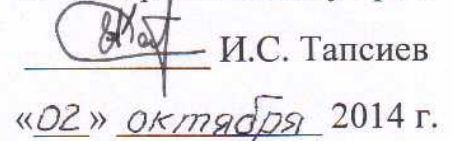 И.С. Тапсиев
«02» октября 2014 г.